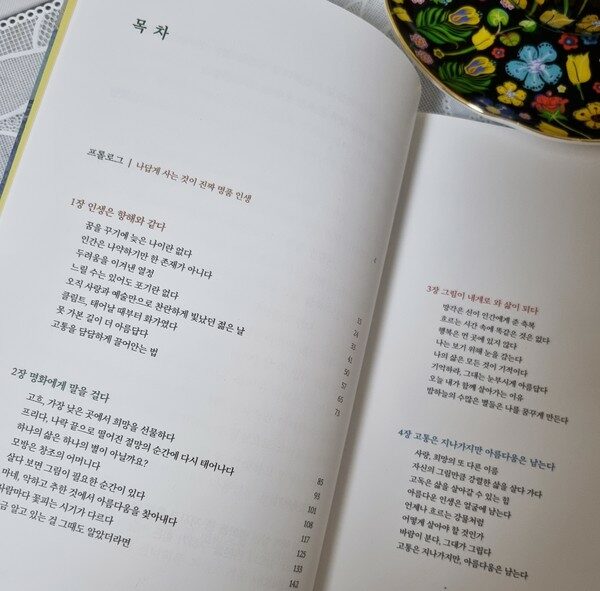 목 차
프롤로그 | 나답게 사는 것이 진짜 명품 인생
1장 인생은 항해와 같다
꿈을 꾸기에 늦은 나이란 없다
인간은 나약하기만 한 존재가 아니다
두려움을 이겨낸 열정
느릴 수는 있어도 포기란 없다 13
오직 사랑과 예술만으로 찬란하게 빛났던 젊은 날 24
클림트, 태어날 때부터 화가였다 33
못 가본 길이 더 아름답다 41
고통을 담담하게 끌어안는 법 50
57
65
73
2장 명화에게 말을 걸다
고흐, 가장 낮은 곳에서 희망을 선물하다
프리다, 나락 끝으로 떨어진 절망의 순간에 다시 태어나다
하나의 삶은 하나의 별이 아닐까요?
모방은 창조의 어머니다 85
살다 보면 그림이 필요한 순간이 있다 93
마네, 악하고 추한 것에서 아름다움을 찾아내다 101
사람마다 꽃피는 시기가 다르다 108
금 알고 있는 걸 그때도 알았더라면 117
125
133
142
3장 그림이 내게로 와 삶이 되다
망각은 신이 인간에게 준 축복
흐르는 시간 속에 똑같은 것은 없다
행복은 먼 곳에 있지 않다
나는 보기 위해 눈을 감는다
나의 삶은 모든 것이 기적이다
기억하라, 그대는 눈부시게 아름답다
오늘 내가 함께 살아가는 이유
밤하늘의 수많은 별들은 나를 꿈꾸게 만든다
4장 고통은 지나가지만 아름다움은 남는다
사랑, 희망의 또 다른 이름
자신의 그림만큼 강렬한 삶을 살다 가다
고독은 삶을 살아갈 수 있는 힘
아름다운 인생은 얼굴에 남는다
언제나 흐르는 강물처럼
어떻게 살아야 할 것인가
바람이 분다, 그대가 그립다
고통은 지나가지만, 아름다움은 남는다